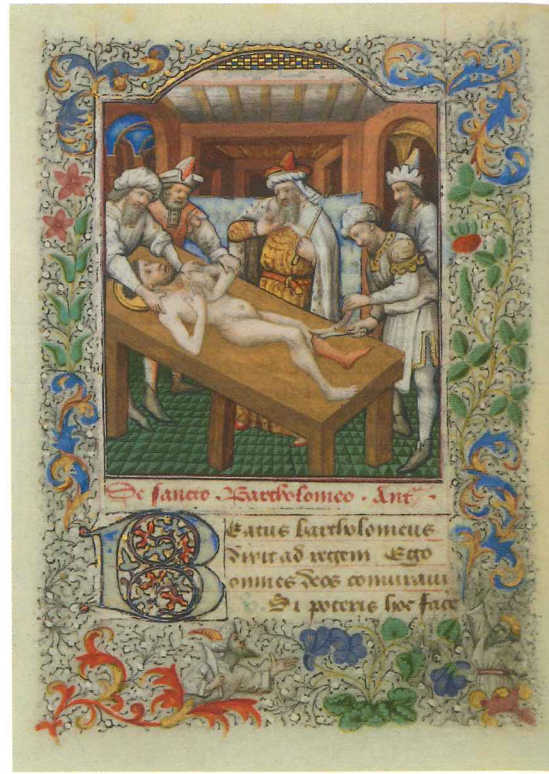 De sancto . Bartholomeo . Ant᷑ .
Beatus bartholomeus
dixit ad regem Ego
omnes deos comminui
Si poteris hoc face